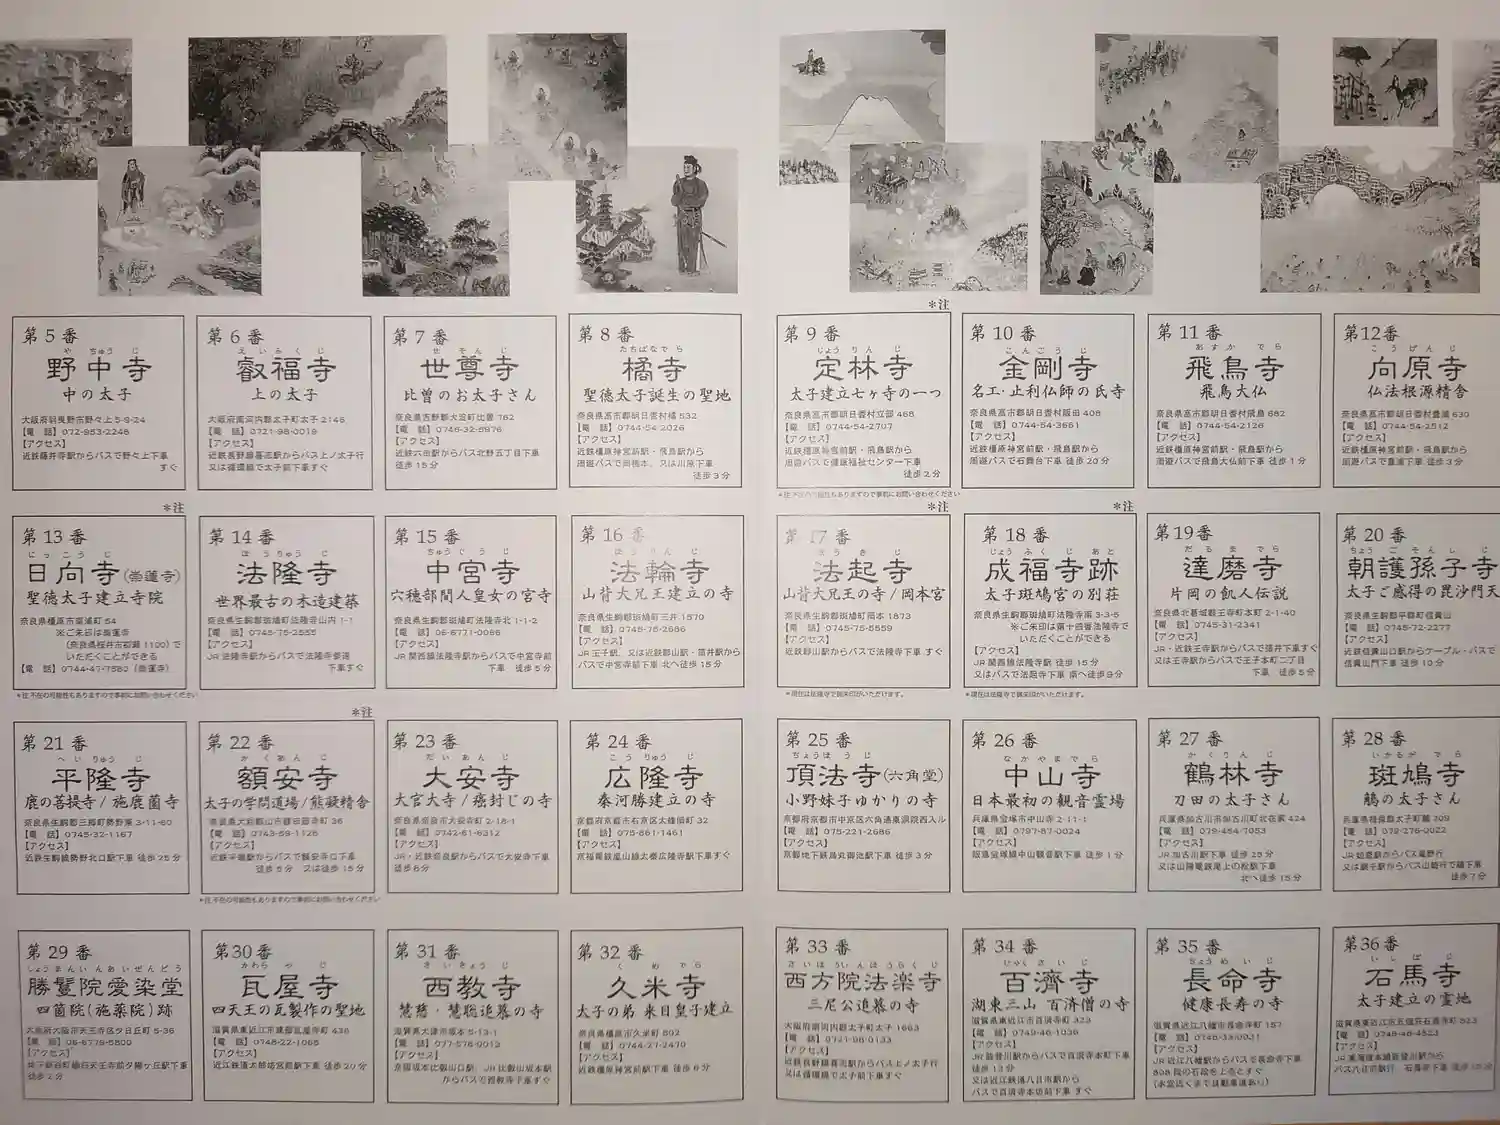 第5番
や ちゅう じ
野中寺
中の太子
大阪府羽曳野市野々上5-9-24
【電 話】072-953-2248
【アクセス】
近鉄藤井寺駅からバスで野々上下車
すぐ
第6番
えいふくじ
叡福寺
上の太子
大阪府南河内郡太子町太子2146
【電 話】0721-98-0019
【アクセス】
近鉄長野線喜志駅からバス上ノ太子行
又は循環線で太子前下車すぐ
第7番
せそんじ
世尊寺
比曽のお太子さん
奈良県吉野郡大淀町比曽762
【電 話】0746-32-5976
【アクセス】
近鉄六田駅からバス北野五丁目下車
徒歩15分
第8番
たちばなでら
橘寺
聖徳太子誕生の聖地
奈良県高市郡明日香村橘532
【電 話】0744-54-2026
【アクセス】
近鉄橿原神宮前駅・飛鳥駅から
周遊バスで岡橋本、又は川原下車
徒歩3分
*注
第9番
じょうりんじ
定林寺
太子建立七ヶ寺の一つ
奈良県高市郡明日香村立部468
【電 話】0744-54-2707
【アクセス】
近鉄橿原神宮前駅・飛鳥駅から
周遊バスで健康福祉センター下車
徒歩2分
第10番
こんごうじ
金剛寺
名工・止利仏師の氏寺
奈良県高市郡明日香村阪田408
【電 話】0744-54-3661
【アクセス】
近鉄橿原神宮前駅・飛鳥駅から
周遊バスで石舞台下車 徒歩20分
第11番
あすかでら
飛鳥寺
飛鳥大仏
奈良県高市郡明日香村飛鳥682
【電 話】0744-54-2126
【アクセス】
近鉄橿原神宮前駅・飛鳥駅から
周遊バスで飛鳥大仏前下車 徒歩1分
第12番
こうげんじ
向原寺
仏法根源精舎
奈良県高市郡明日香村豊浦630
【電 話】0744-54-2512
【アクセス】
近鉄橿原神宮前駅・飛鳥駅から
周遊バスで豊浦下車 徒歩3分
*注
第13番
にっこうじ
日向寺(崇蓮寺)
聖徳太子建立寺院
奈良県橿原市南浦町54
※ご朱印は崇蓮寺
いただくことができる
【電 話】0744-47-7580(崇蓮寺)
*注 不在の可能性もありますので事前にお問い合わせください
第14番
ほうりゅうじ
法隆寺
世界最古の木造建築
奈良県生駒郡斑鳩町法隆寺山内1-1
【電 話】0745-75-2555
【アクセス】
JR法隆寺駅からバスで法隆寺参道
下車すぐ
第15番
ちゅうぐうじ
中宮寺
穴穂部間人皇女の宮寺
奈良県生駒郡斑鳩町法隆寺北1-1-2
【アクセス】
JR関西線法隆寺駅からバスで中宮寺前
下車 徒歩5分
第16番
ほうりんじ
法輪寺
山背大兄王建立の寺
奈良県生駒郡斑鳩町三井1570
【電 話】0745-75-2686
【アクセス】
JR王子駅、又は近鉄郡山駅・筒井駅から
バスで中宮寺前下車 北へ徒歩15分
*注 不在の可能性もありますので事前にお問い合わせください
*注
第17番
ほうきじ
法起寺
山背大兄王の寺/岡本宮
奈良県生駒郡斑鳩町岡本1873
【電 話】0745-75-5559
【アクセス】
近鉄郡山駅からバスで法起寺下車 すぐ
*現在は法隆寺で御朱印がいただけます。
*注
第18番
じょうふくじあと
成福寺跡
太子斑鳩宮の別荘
奈良県生駒郡斑鳩町法隆寺南3-3-5
※ご朱印は第十四番法隆寺で
いただくことができる
【アクセス】
JR関西線法隆寺駅 徒歩15分
又はバスで法起寺下車 南へ徒歩9分
*現在は法隆寺で御朱印がいただけます。
第19番
だるまでら
達磨寺
片岡の飢人伝説
奈良県北葛城郡王寺町本町2-1-40
【電 話】0745-31-2341
【アクセス】
JR・近鉄王寺駅からバスで張井下車すぐ
又は王寺駅からバスで王子本町二丁目
下車 徒歩5分
第20番
ちょうごそんしじ
朝護孫子寺
太子ご感得の毘沙門天
奈良県生駒郡平群町信貴山
【電 話】0745-72-2277
【アクセス】
近鉄信貴山口駅からケーブル・バスで
信貴山門下車 徒歩10分
第21番
へいりゅうじ
平隆寺
鹿の菩提寺/施鹿薗寺
奈良県生駒郡三郷町勢野東3-11-60
【電 話】0745-32-1167
【アクセス】
近鉄生駒線勢野北口駅下車 徒歩25分
*注
第22番
かくあんじ
額安寺
太子の学問道場/熊凝精舎
奈良県大和郡山市額田部寺町36
【電 話】0743-59-1128
【アクセス】
近鉄平端駅からバスで額安寺口下車
徒歩5分 又は徒歩15分
*注 不在の可能性もありますので事前にお問い合わせください
第23番
だいあんじ
大安寺
大官大寺/癌封じの寺
奈良県奈良市大安寺町2-18-1
【電 話】0742-61-6312
【アクセス】
JR・近鉄奈良駅からバスで大安寺下車
徒歩6分
第24番
こうりゅうじ
広隆寺
秦河勝建立の寺
京都府京都市右京区太秦蜂岡町32
【電 話】075-861-1461
【アクセス】
京福電鉄嵐山線太秦広隆寺駅下車すぐ
第25番
ちょうほうじ
頂法寺(六角堂)
小野妹子ゆかりの寺
京都府京都市中京区六角通東洞院西入ル
【電 話】075-221-2686
【アクセス】
京都地下鉄烏丸御池駅下車 徒歩3分
第26番
なかやまでら
中山寺
日本最初の観音霊場
兵庫県宝塚市中山寺2-11-1
【電 話】0797-87-0024
【アクセス】
阪急宝塚線中山観音駅下車 徒歩1分
第27番
かくりんじ
鶴林寺
刀田の太子さん
兵庫県加古川市加古川町北在家424
【電 話】079-454-7053
【アクセス】
JR加古川駅下車 徒歩25分
又は山陽電鉄尾上の松駅下車
北へ徒歩15分
第28番
いかるがでら
斑鳩寺
鵤の太子さん
兵庫県揖保郡太子町鵤709
【電 話】079-276-0022
【アクセス】
徒歩7分
第29番
しょうまんいんあいぜんどう
勝鬘院愛染堂
四箇院(施薬院)跡
大阪府大阪市天王寺区夕日丘町5-36
【電 話】06-6779-5800
【アクセス】
地下鉄谷町線四天王寺前夕陽ヶ丘駅下車
徒歩2分
第30番
かわらやじ
瓦屋寺
四天王の瓦製作の聖地
滋賀県東近江市建部瓦屋寺町436
【電 話】0748-22-1065
【アクセス】
近江鉄道太郎坊宮前駅下車 徒歩20分
第31番
さいきょうじ
西教寺
慧慈・慧聡追慕の寺
滋賀県大津市坂本5-13-1
【電 話】077-578-0013
【アクセス】
京阪坂本比叡山口駅、JR比叡山坂本駅
からバスで西教寺下車すぐ
第32番
くめでら
久米寺
太子の弟 来目皇子建立
奈良県橿原市久米町502
【電 話】0744-27-2470
【アクセス】
近鉄橿原神宮前駅下車 徒歩6分
第33番
さいほういんほうらくじ
西方院法楽寺
三尼公追慕の寺
大阪府南河内郡太子町太子1663
【電 話】0721-98-0133
【アクセス】
近鉄長野線喜志駅からバス上ノ太子行
又は循環線で太子前下車すぐ
第34番
ひゃくさいじ
百濟寺
湖東三山 百済僧の寺
滋賀県東近江市百済寺町323
【電 話】0749-46-1036
【アクセス】
JR能登川駅からバスで百済寺本町下車
徒歩13分
又は近江鉄道八日市駅から
バスで百済寺本坊前下車 すぐ
第35番
ちょうめいじ
長命寺
健康長寿の寺
滋賀県近江八幡市長命寺町157
【電 話】0748-33-0031
【アクセス】
JR近江八幡駅からバスで長命寺下車
808段の石段を上るとすぐ
(本堂近くまでは駐車道あり)
第36番
いしばじ
石馬寺
太子建立の霊地
滋賀県東近江市五個荘石馬寺町823
【電 話】0748-48-4823
【アクセス】
JR東海道本線能登川駅から